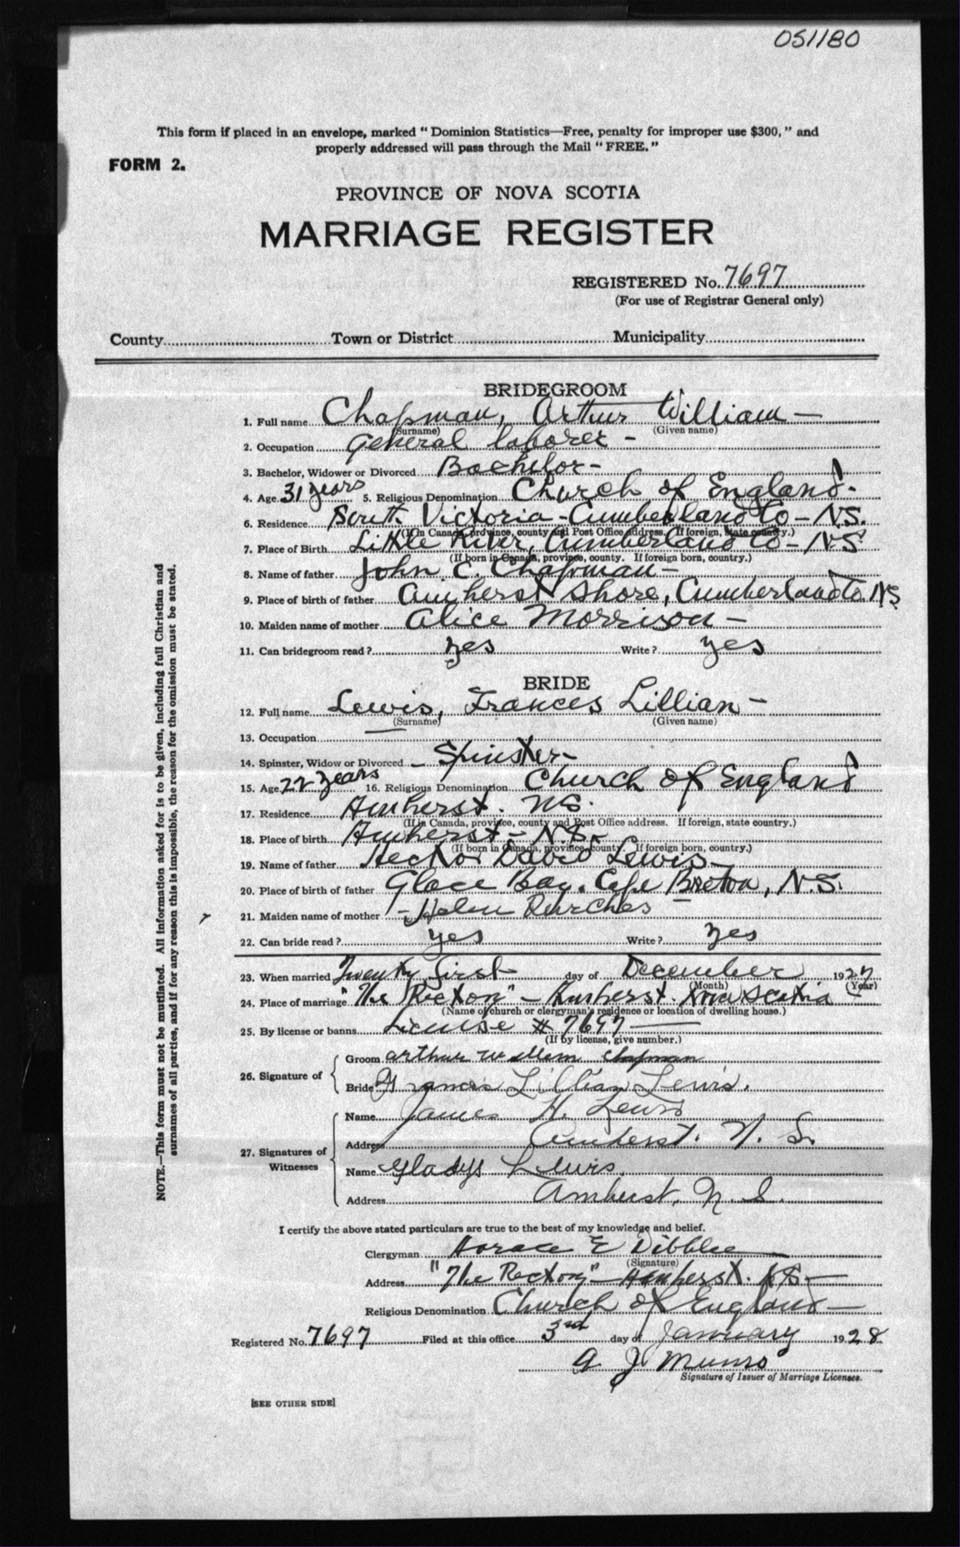 051180
This form if placed in an envelope, marked "Dominion Statistics—Free, penalty for improper use $300," and
properly addressed will pass through the Mail "FREE."
FORM 2.
PROVINCE OF NOVA SCOTIA
MARRIAGE REGISTER
REGISTERED No. 7697
(For use of Registrar General only)
County Town or District Municipality
BRIDEGROOM
1. Full name Chapman, Arthur William —
(Surname) (Given name)
2. Occupation General laborer -
3. Bachelor, Widower or Divorced Bachelor -
4. Age 31 years 5. Religious Denomination Church of England.
6. Residence South Victoria - Cumberland Co - N.S.
(If in Canada, province, county and Post Office address. If foreign, state country.)
7. Place of Birth Little River, Cumberland Co - N.S
(If born in Canada, province, county. If foreign born, country.)
8. Name of father John C. Chapman —
9. Place of birth of father Amherst Shore, Cumberland Co. N.S
10. Maiden name of mother Alice Morrison —
11. Can bridegroom read? yes Write? yes
BRIDE
12. Full name Lewis, Frances Lillian —
(Surname) (Given name)
13. Occupation —
14. Spinster, Widow or Divorced - Spinster -
15. Age 22 years 16. Religious Denomination Church of England
17. Residence Amherst. N.S.
(If in Canada, province, county and Post Office address. If foreign, state country.)
18. Place of birth Amherst - N.S. -
(If born in Canada, province, county. If foreign born, country.)
19. Name of father Hector David Lewis -
20. Place of birth of father Glace Bay, Cape Breton, N.S.
21. Maiden name of mother - Helen
22. Can bride read? yes Write? yes
23. When married Twenty first day of December 1927
(Month) (Year)
24. Place of marriage "The Rectory" - Amherst. Nova Scotia
(Name of church or clergyman's residence or location of dwelling house.)
25. By license or banns License # 7697 —
(If by license, give number.)
26. Signature of
Groom arthur william chapman
Bride Frances Lillian Lewis.
27. Signatures of Witnesses
Name James H. Lewis
Address Amherst. N. S.
Name Gladys Lewis.
Address Amherst, N. S.
I certify the above stated particulars are true to the best of my knowledge and belief.
Clergyman Horace E Dibblee
(Signature)
Address "The Rectory" - Amherst. N.S. —
Religious Denomination Church of England —
Registered No. 7697 Filed at this office 3rd day of January 1928
A J Munro
Signature of Issuer of Marriage Licenses.
[SEE OTHER SIDE]
NOTE.—This form must not be mutilated. All information asked for is to be given, including full Christian and
surnames of all parties, and if for any reason this is impossible, the reason for the omission must be stated.